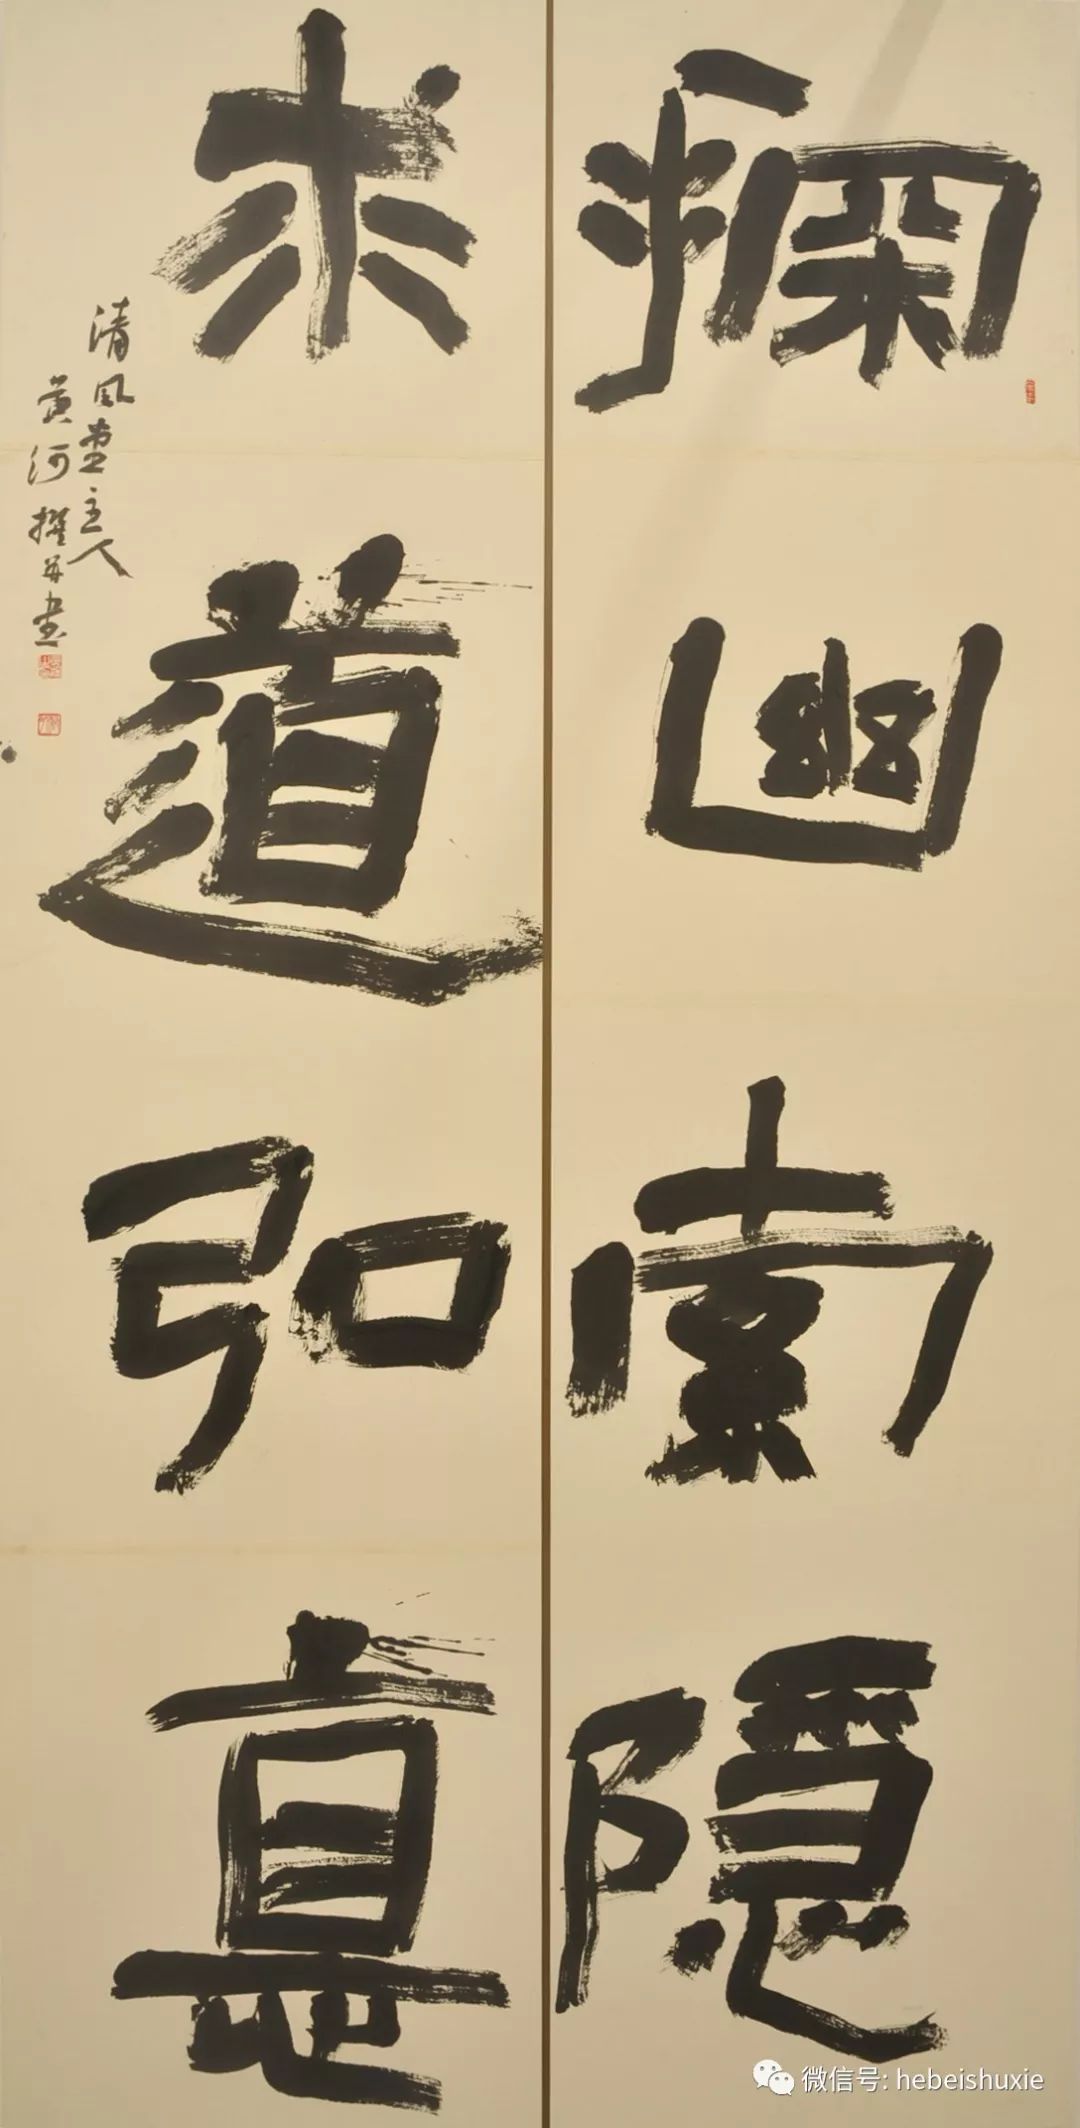 探幽索隱
求道弘惪
清风堂主人
黄河撰并書
微信号: hebeishuxie